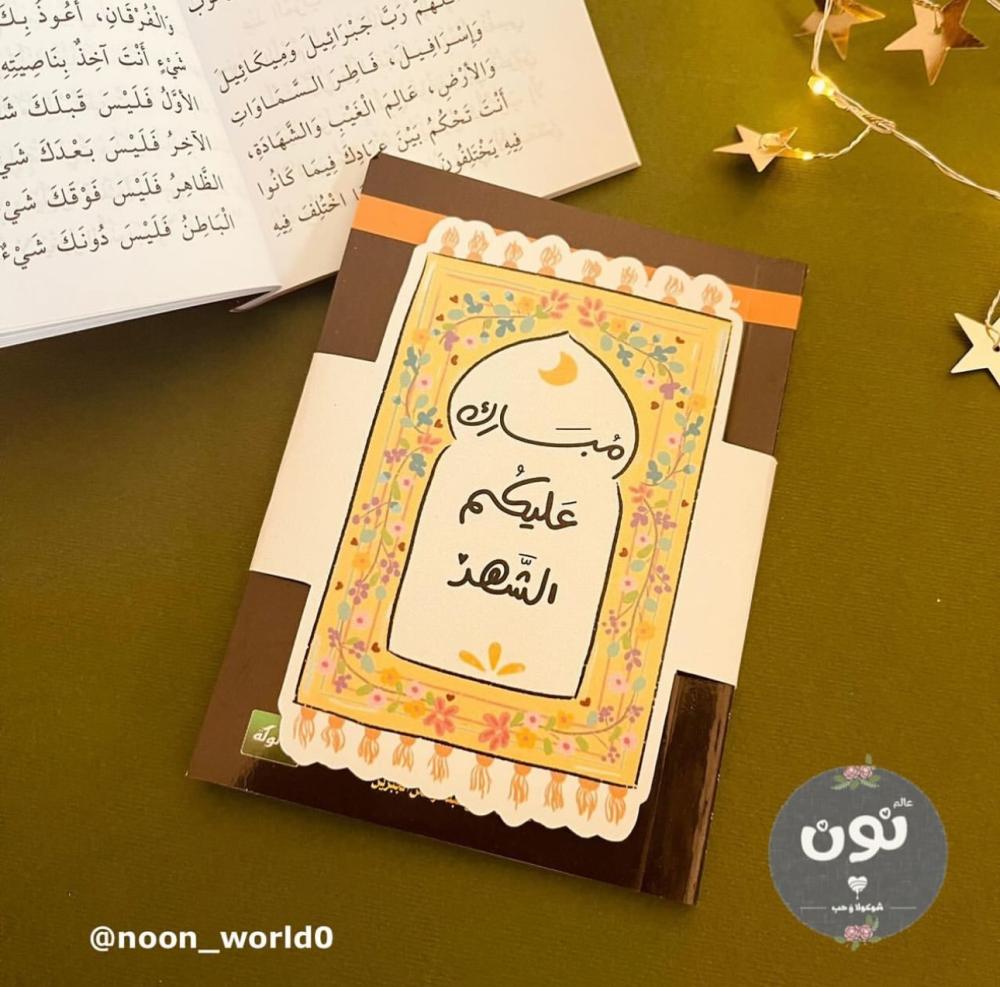 وَالْفُرْقَانِ، أَعُوذُ بِكَ
شَيْءٍ أَنْتَ آخِذٌ بِنَاصِيَتِهِ
الأَوَّلُ فَلَيْسَ قَبْلَكَ
الآخِرُ فَلَيْسَ بَعْدَكَ
الظَّاهِرُ فَلَيْسَ فَوْقَكَ
الْبَاطِنُ فَلَيْسَ دُونَكَ شَيْءٌ
رَبَّ جَبْرَائِيلَ وَمِيكَائِيلَ
وَإِسْرَافِيلَ، فَاطِرَ السَّمَاوَاتِ
وَالأَرْضِ، عَالِمَ الْغَيْبِ وَالشَّهَادَةِ،
أَنْتَ تَحْكُمُ بَيْنَ عِبَادِكَ فِيمَا كَانُوا
فِيهِ يَخْتَلِفُونَ
اخْتُلِفَ فِيهِ
مُبَارك
عَليكُم
الشَّهر
عالم
نون
شوكولا و حب
@noon_world0